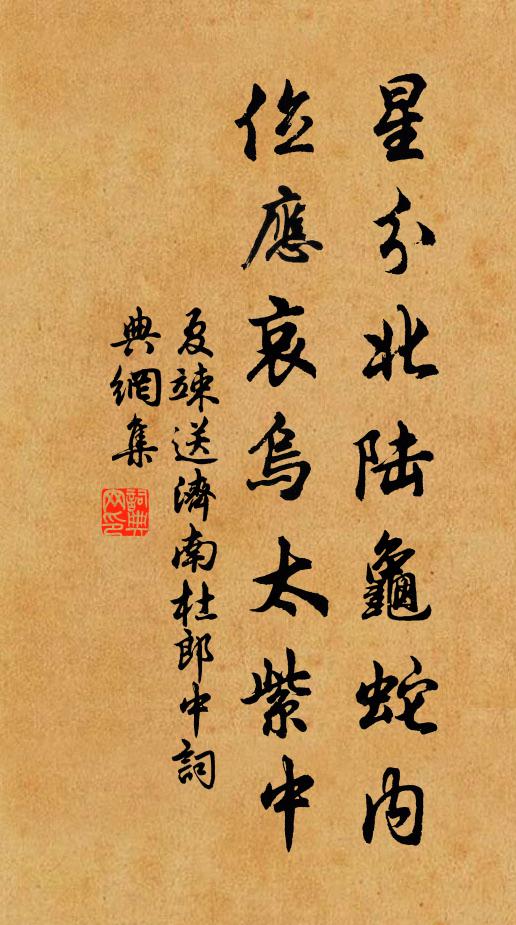 星分北陆龜蛇内
位應哀烏太紫中
夏竦送濟南杜郎中詞
典網集
詞典網印